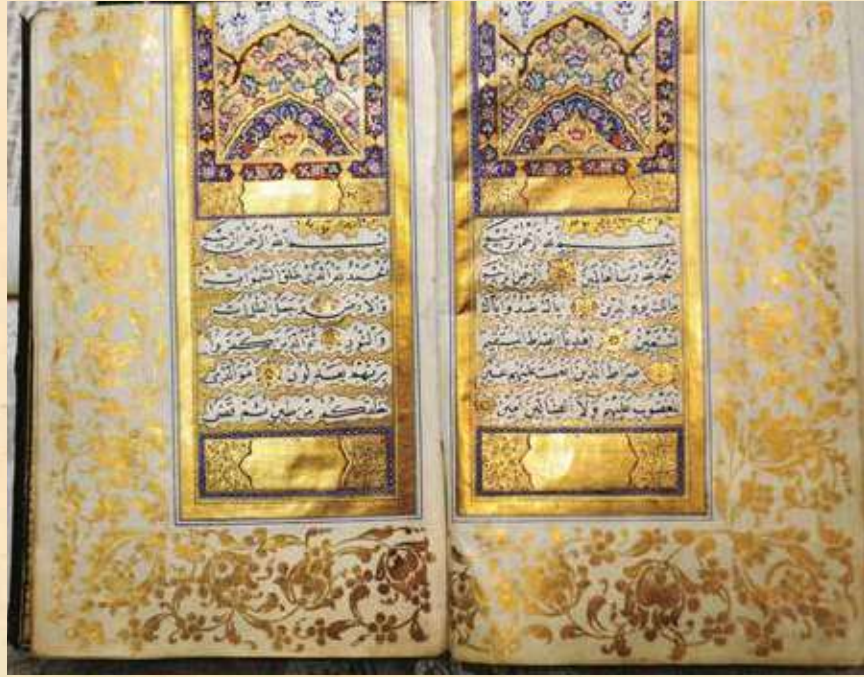 بسم الله الرحمن الرحيم
الحمد لله رب العالمين الرحمن الرحيم
مالك يوم الدين اياك نعبد واياك
نستعين اهدنا الصراط المستقيم
صراط الذين انعمت عليهم غير
المغضوب عليهم ولا الضالين
بسم الله الرحمن الرحيم
الحمد لله الذي خلق السموات
والارض وجعل الظلمات
والنور ثم الذين كفروا
بربهم يعدلون هو الذي
خلقكم من طين ثم قضى